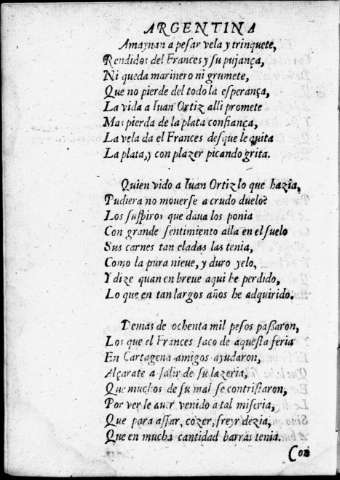 ARGENTINA
Amaynan a pesar vela y trinquete,
Rendidos del Frances y su pujança,
Ni queda marinero ni grumete,
Que no pierde del todo la esperança,
La vida a Iuan Ortiz alli promete
Mas pierda de la plata confiança,
La vela da el Frances desque le quita
La plata, y con plazer picando grita.
Quien vido a Iuan Ortiz lo que hazia,
Pudiera no mouerse a crudo duelo?
Los suspiros que daua los ponia
Con grande sentimiento alla en el suelo
Sus carnes tan eladas las tenia,
Como la pura nieue, y duro yelo,
Y dize quan en breue aqui he perdido,
Lo que en tan largos años he adquirido.
Demas de ochenta mil pesos passaron,
Los que el Frances saco de aquesta feria
En Cartagena amigos ayudaron,
Alçarate a salir de su lazeria,
Que muchos de su mal se contristaron,
Por verle auer venido a tal miseria,
Que para assar, cozer, freyr dezia,
Que en mucha cantidad barras tenia.
Con